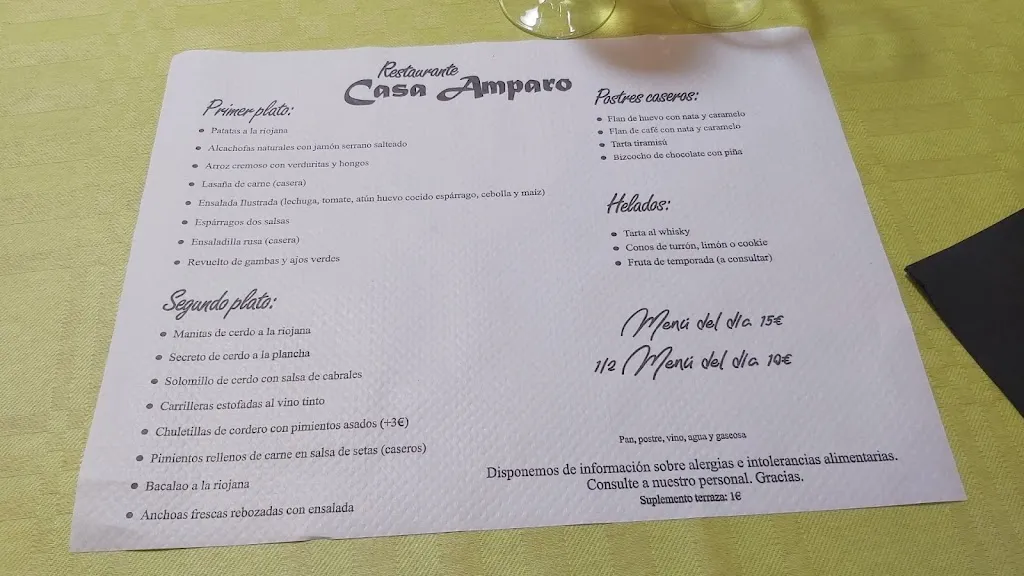 Restaurante
Casa Amparo
Primer plato:
Patatas a la riojana
Alcachofas naturales con jamón serrano salteado
Arroz cremoso con verduritas y hongos
Lasaña de carne (casera)
Ensalada Ilustrada (lechuga, tomate, atún huevo cocido espárrago, cebolla y maíz)
Espárragos dos salsas
Ensaladilla rusa (casera)
Revuelto de gambas y ajos verdes
Segundo plato:
Manitas de cerdo a la riojana
Secreto de cerdo a la plancha
Solomillo de cerdo con salsa de cabrales
Carrilleras estofadas al vino tinto
Chuletillas de cordero con pimientos asados (+3€)
Pimientos rellenos de carne en salsa de setas (caseros)
Bacalao a la riojana
Anchoas frescas rebozadas con ensalada
Postres caseros:
Flan de huevo con nata y caramelo
Flan de café con nata y caramelo
Tarta tiramisú
Bizcocho de chocolate con piña
Helados:
Tarta al whisky
Conos de turrón, limón o cookie
Fruta de temporada (a consultar)
Menú del día 15€
1/2 Menú del día 10€
Pan, postre, vino, agua y gaseosa
Disponemos de información sobre alergias e intolerancias alimentarias.
Consulte a nuestro personal. Gracias.
Suplemento terraza: 1€